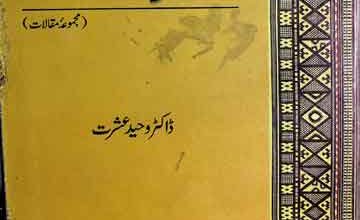 (مجموعۂ مقالات)
ڈاکٹر وحید عشرت